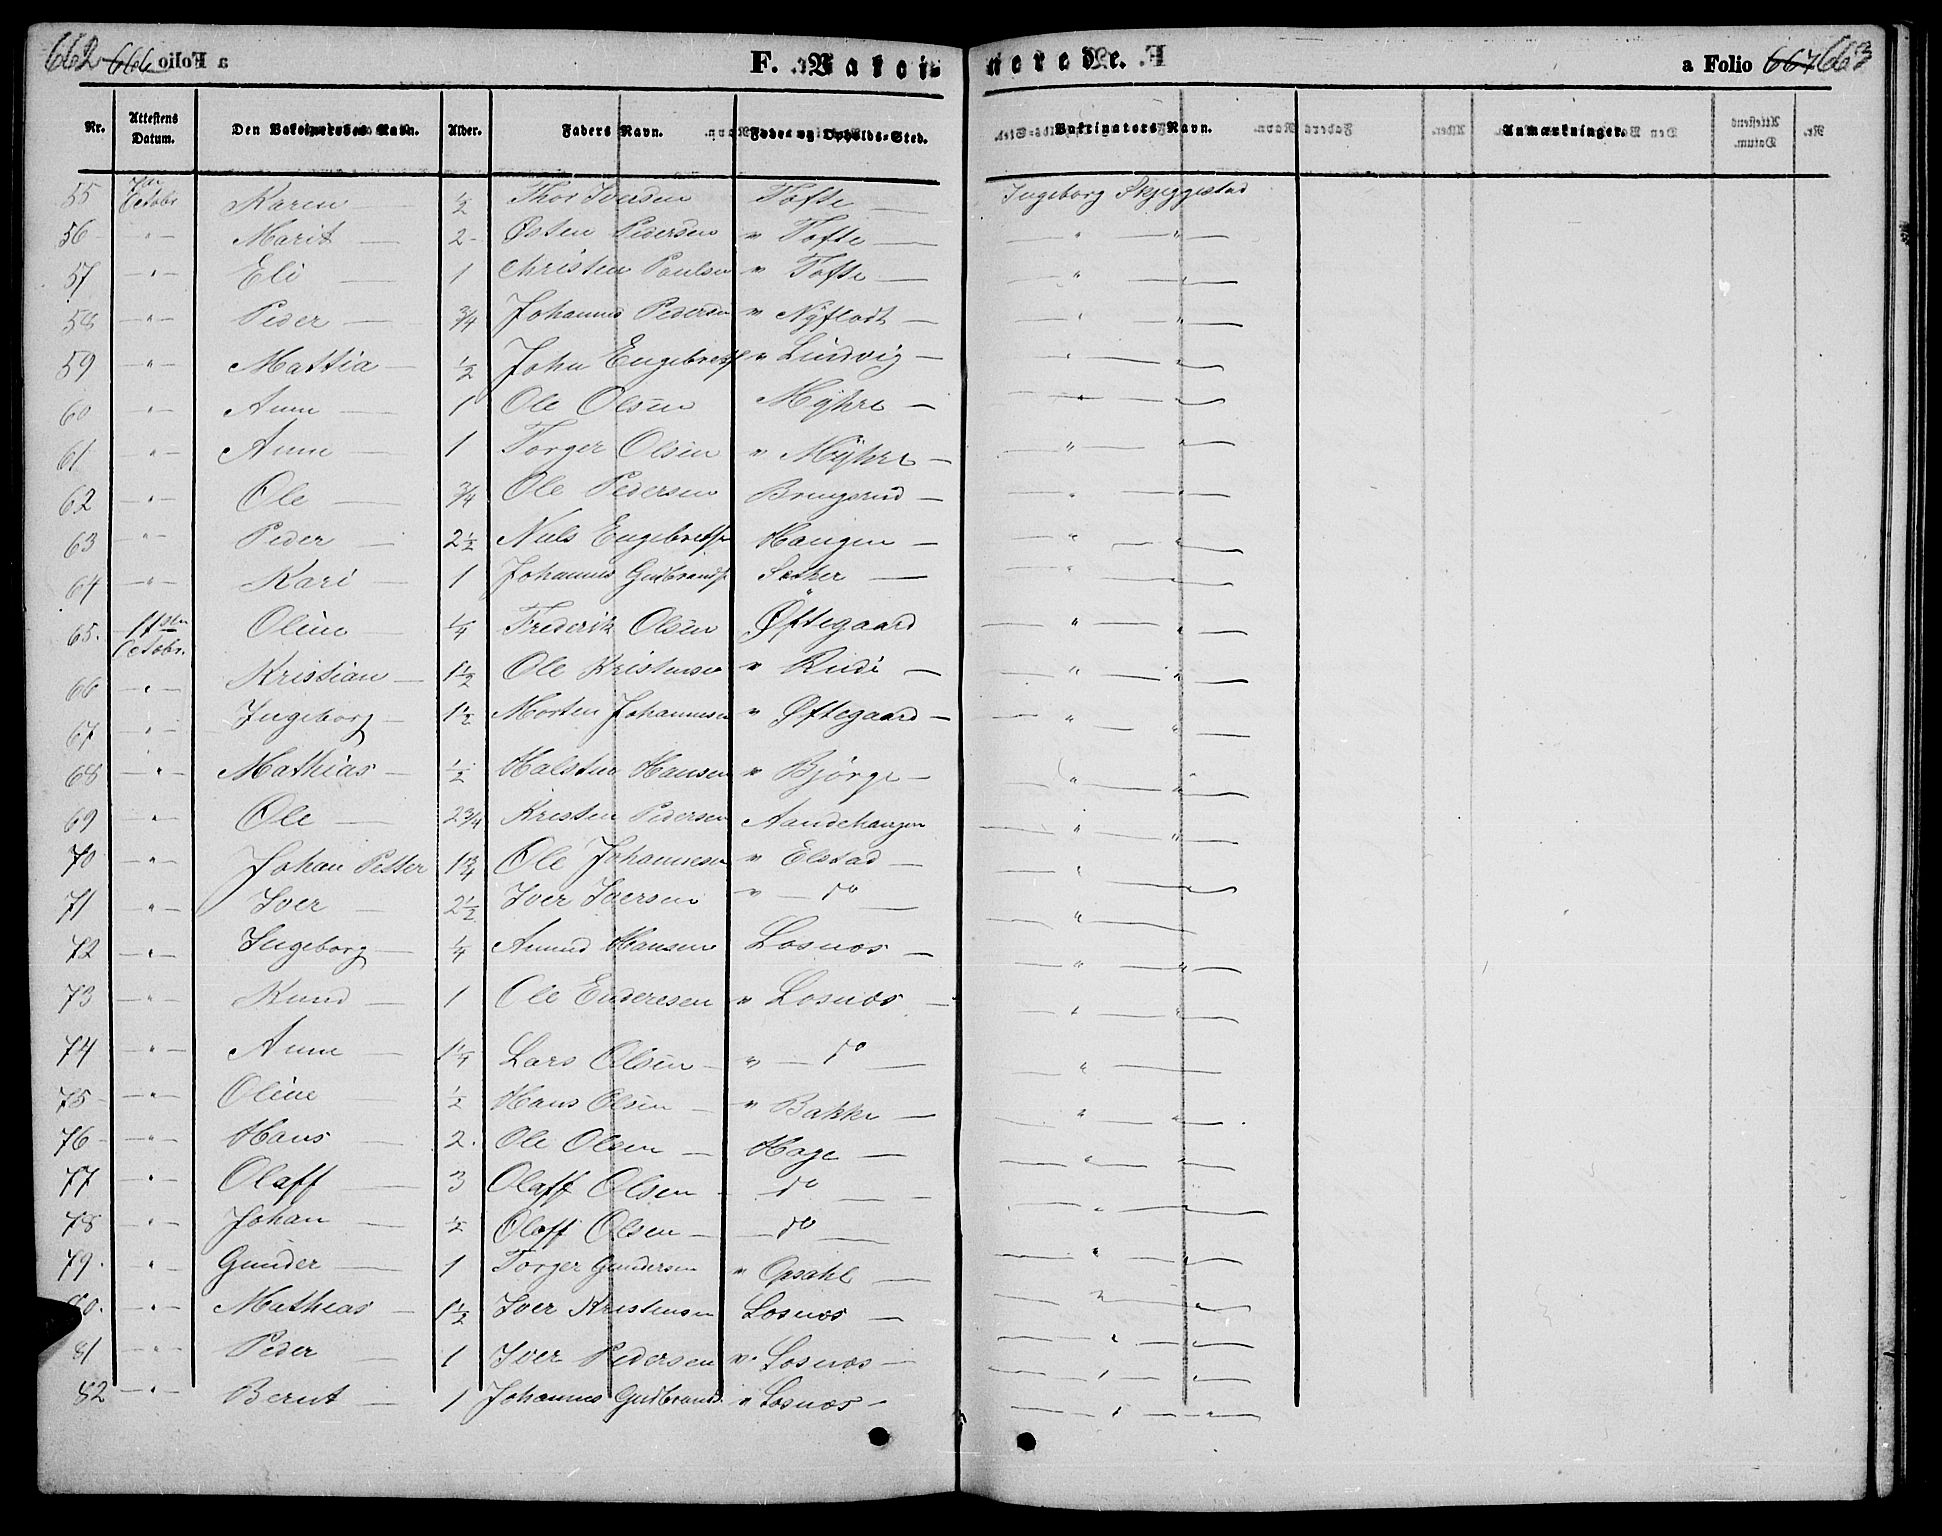 662 666 a Folio F. Vakci- nerede. a Folio 667 663
Nr. Attestens Datum. Den Vakcineredes Navn. Alder. Faders Navn. Fødes og Opholds-Sted. Vakcinateurs Navn. Anmærkninger.
55 Octobr Karen — ½ Thor Iversen Tofte — Ingeborg Skjeggestad
56 — " — Marit — 2 - Østen Pedersen " Tofte — — " — " —
57 — " — Eli — 1 Christen Paulsen " Tofte — — " —
58 — " — Peder — ¾ Johannes Pedersen " Nyflodt — — " — " —
59 — " — Mattia — ½ John Engebrets. " Lindvig — — " — " —
60 — " — Anne — 1 Ole Olsen Myhre — — " — " —
61 — " — Anne — 1 Torger Olsen " Myhre — — " — " —
62 — " — Ole — ¾ Ole Pedersen Brugsrud — — " — " —
63 — " — Peder — 2½ Niels Engebrets. Haugen — — " — " —
64 — " — Kari — 1 Johannes Gudbrands. Sæther — — " — " —
65. 17de Octobr. Oline — ¼ Frederik Olsen Øftegaard — " — " —
66 — " — Kristian — 1½ Ole Kristensen " Rudi — — " — " —
67 — " — Ingeborg — 1½ Morten Johannesen " Øftegaard — — " — " —
68 — " — Mathias — ½ Halsten Hansen " Bjørge — — " — " —
69 — " — Ole — 2¾ Kristen Pedersen Aandehaugen — " — " —
70 — " — Johan Petter 1¾ Ole Johannesen " Elstad — — " — " —
71 — " — Iver — 2½ Iver Iversen " — do — — " —
72 — " — Ingeborg — ¼ Amund Hansen Losnæs — — " — " —
73 — " — Knud — 1 Ole Enderesen " Losnæs — — " — " —
74 — " — Anne — 1¼ Lars Olsen — " — do — — " —
75 — " — Oline — ½ Hans Olsen — " Bakke — — " — " —
76 — " — Hans — 2. Ole Olsen — Hage — — " — " —
77 — " — Olaff — 3 Olaff Olsen — do — — " — " —
78 — " — Johan — ½ Olaff Olsen — — do — — " — " —
79. — " — Gunder — 1 Torger Gundersen " Opsahl — — " — " —
80. — " — Mathias — 1½ Iver Kristensen Losnæs — — " — " —
81 — " — Peder — 1 Iver Pedersen " Losnæs — — " — " —
82 — " — Bernt — 1 Johannes Gudbrands. " Losnæs — — " — " —